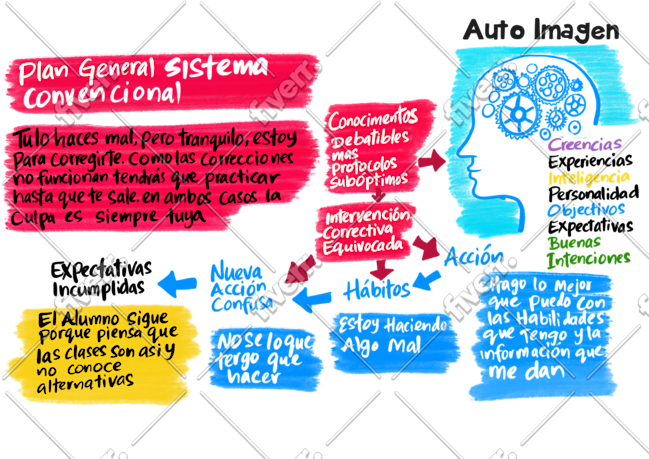 Auto Imagen
Plan General Sistema
Convencional
Tu lo haces mal, pero tranquilo, estoy
para corregirte. Como las correcciones
no funcionan tendrás que practicar
hasta que te sale. en ambos casos la
culpa es siempre tuya
Conocimientos
Debatibles
mas
Protocolos
Subóptimos
Creencias
Experiencias
Inteligencia
Personalidad
Objectivos
Expectativas
Buenas
Intenciones
Intervención
Correctiva
Equivocada
Acción
Hago lo mejor
que puedo con
las Habilidades
que tengo y la
información que
me dan
Hábitos
Estoy Haciendo
Algo Mal
Nueva
Acción
Confusa
No se lo que
tergo que
hacer
Expectativas
Incumplidas
El Alumno Sigue
porque piensa que
las clases son asi y
no conoce
alternativas
fiverr.
fiverr.
fiverr.
fiverr.
fiverr.
fiverr.